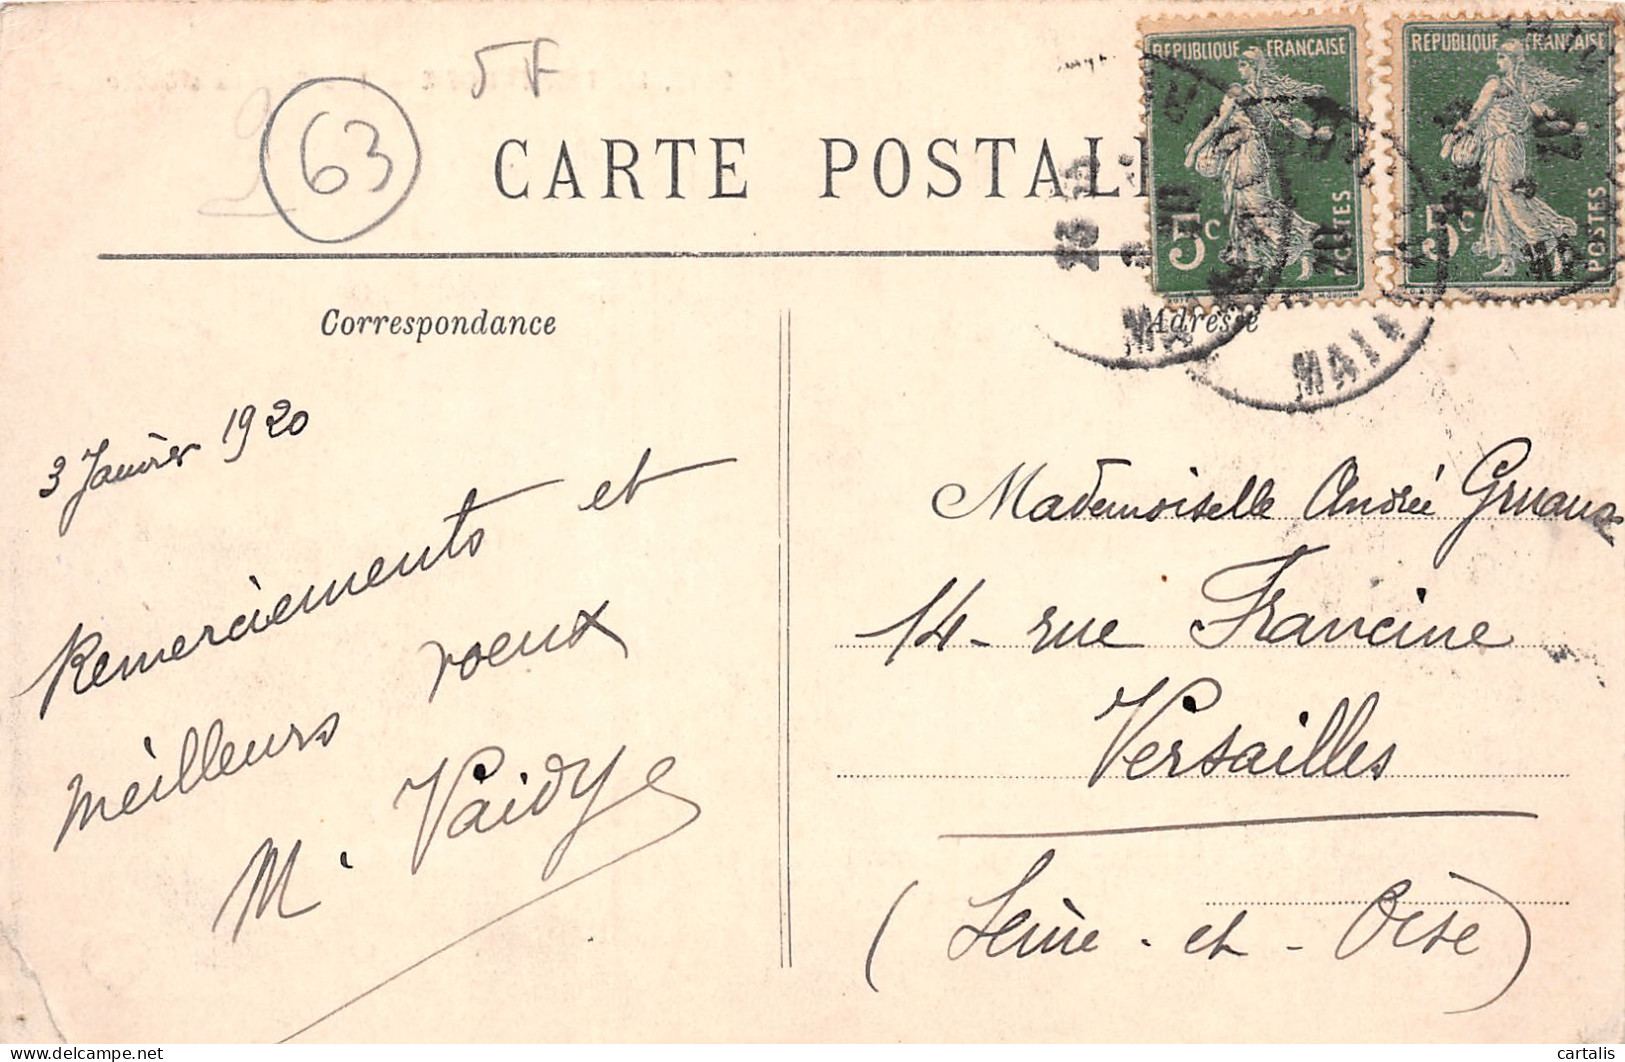 5F
63
CARTE POSTALE
RÉPUBLIQUE FRANÇAISE
5c
POSTES
RÉPUBLIQUE FRANÇAISE
5c
POSTES
Correspondance
Adresse
3 Janvier 1920
Remerciements et
meilleurs voeux
M. Vaidye
Mademoiselle Andrée
14 - rue Francine
Versailles
(Seine - et - Oise)
cartalis
delcampe.net